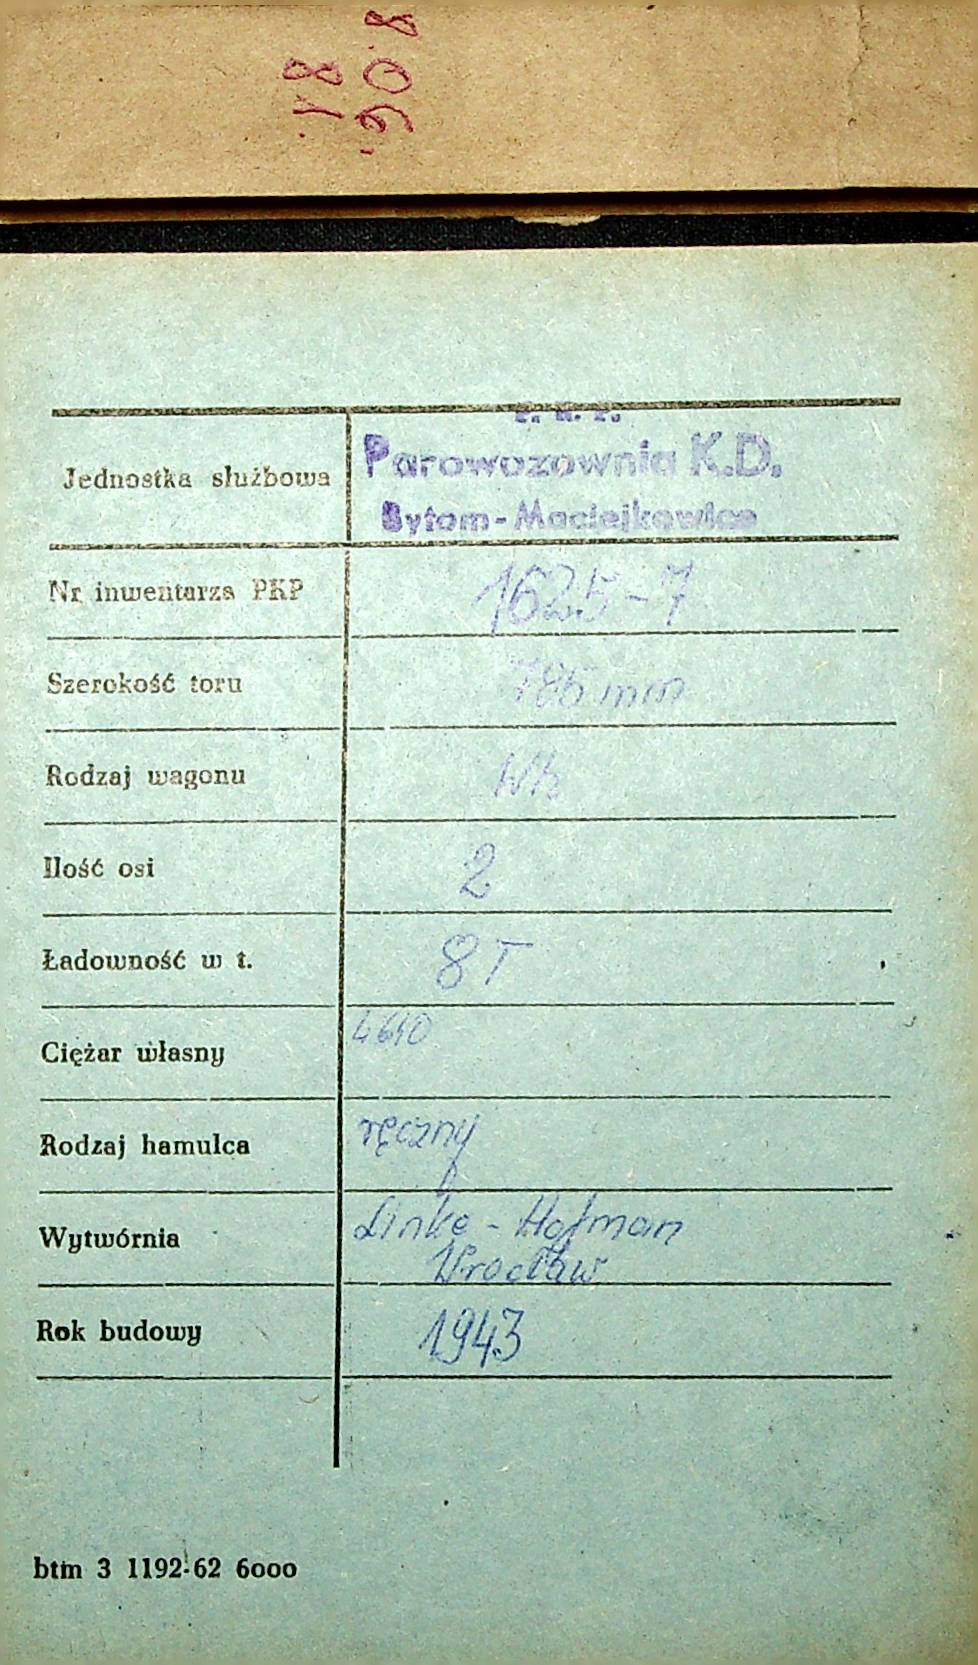 P. K. P.
Jednostka służbowa Parowozownia K.D.
Bytom-Maciejkowice
Nr inwentarza PKP 1625-7
Szerokość toru 785 mm
Rodzaj wagonu Wk
Ilość osi 2
Ładowność w t. 8T
Ciężar własny 4640
Rodzaj hamulca ręczny
Wytwórnia Linke-Hofman
Wrocław
Rok budowy 1943
btm 3 1192-62 6000